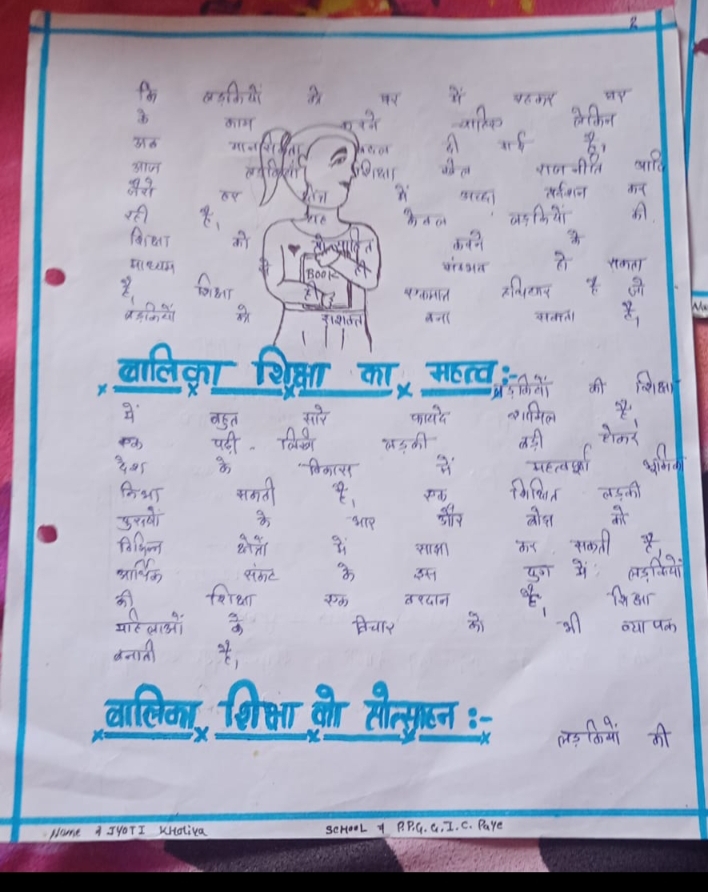 2
कि लड़कियों को घर में रहकर घर
के काम करने चाहिए लेकिन
अब मानसिकता बदल दी गई है,
आज लड़कियाँ शिक्षा खेल राजनीति आदि
जैसे हर क्षेत्र में अच्छा प्रर्दशन कर
रही है, यह केवल लड़कियों की
शिक्षा को प्रोत्साहित करने के
माध्यम से ही संभव हो सकता
BOOK
है, शिक्षा ही एकमात्र हथियार है जो
लड़कियों को सशक्त बना सकता है,
बालिका शिक्षा का महत्व :-
लड़कियों की शिक्षा
में बहुत सारे फायदे शामिल है,
एक पढ़ी - लिखी लड़की बड़ी होकर
देश के विकास में महत्वपूर्ण भूमिका
निभा सकती है, एक शिक्षित लड़की
पुरुषों के भार और बोझ को
विभिन्न क्षेत्रों में साझा कर सकती है,
आर्थिक संकट के इस युग में लड़कियों
की शिक्षा एक वरदान है, शिक्षा
महिलाओं के विचार को भी व्यापक
बनाती है,
बालिका शिक्षा को प्रोत्साहन :-
लड़कियों की
Name JYOTI Kholiya SCHOOL P.P.G.G.I.C. Paye